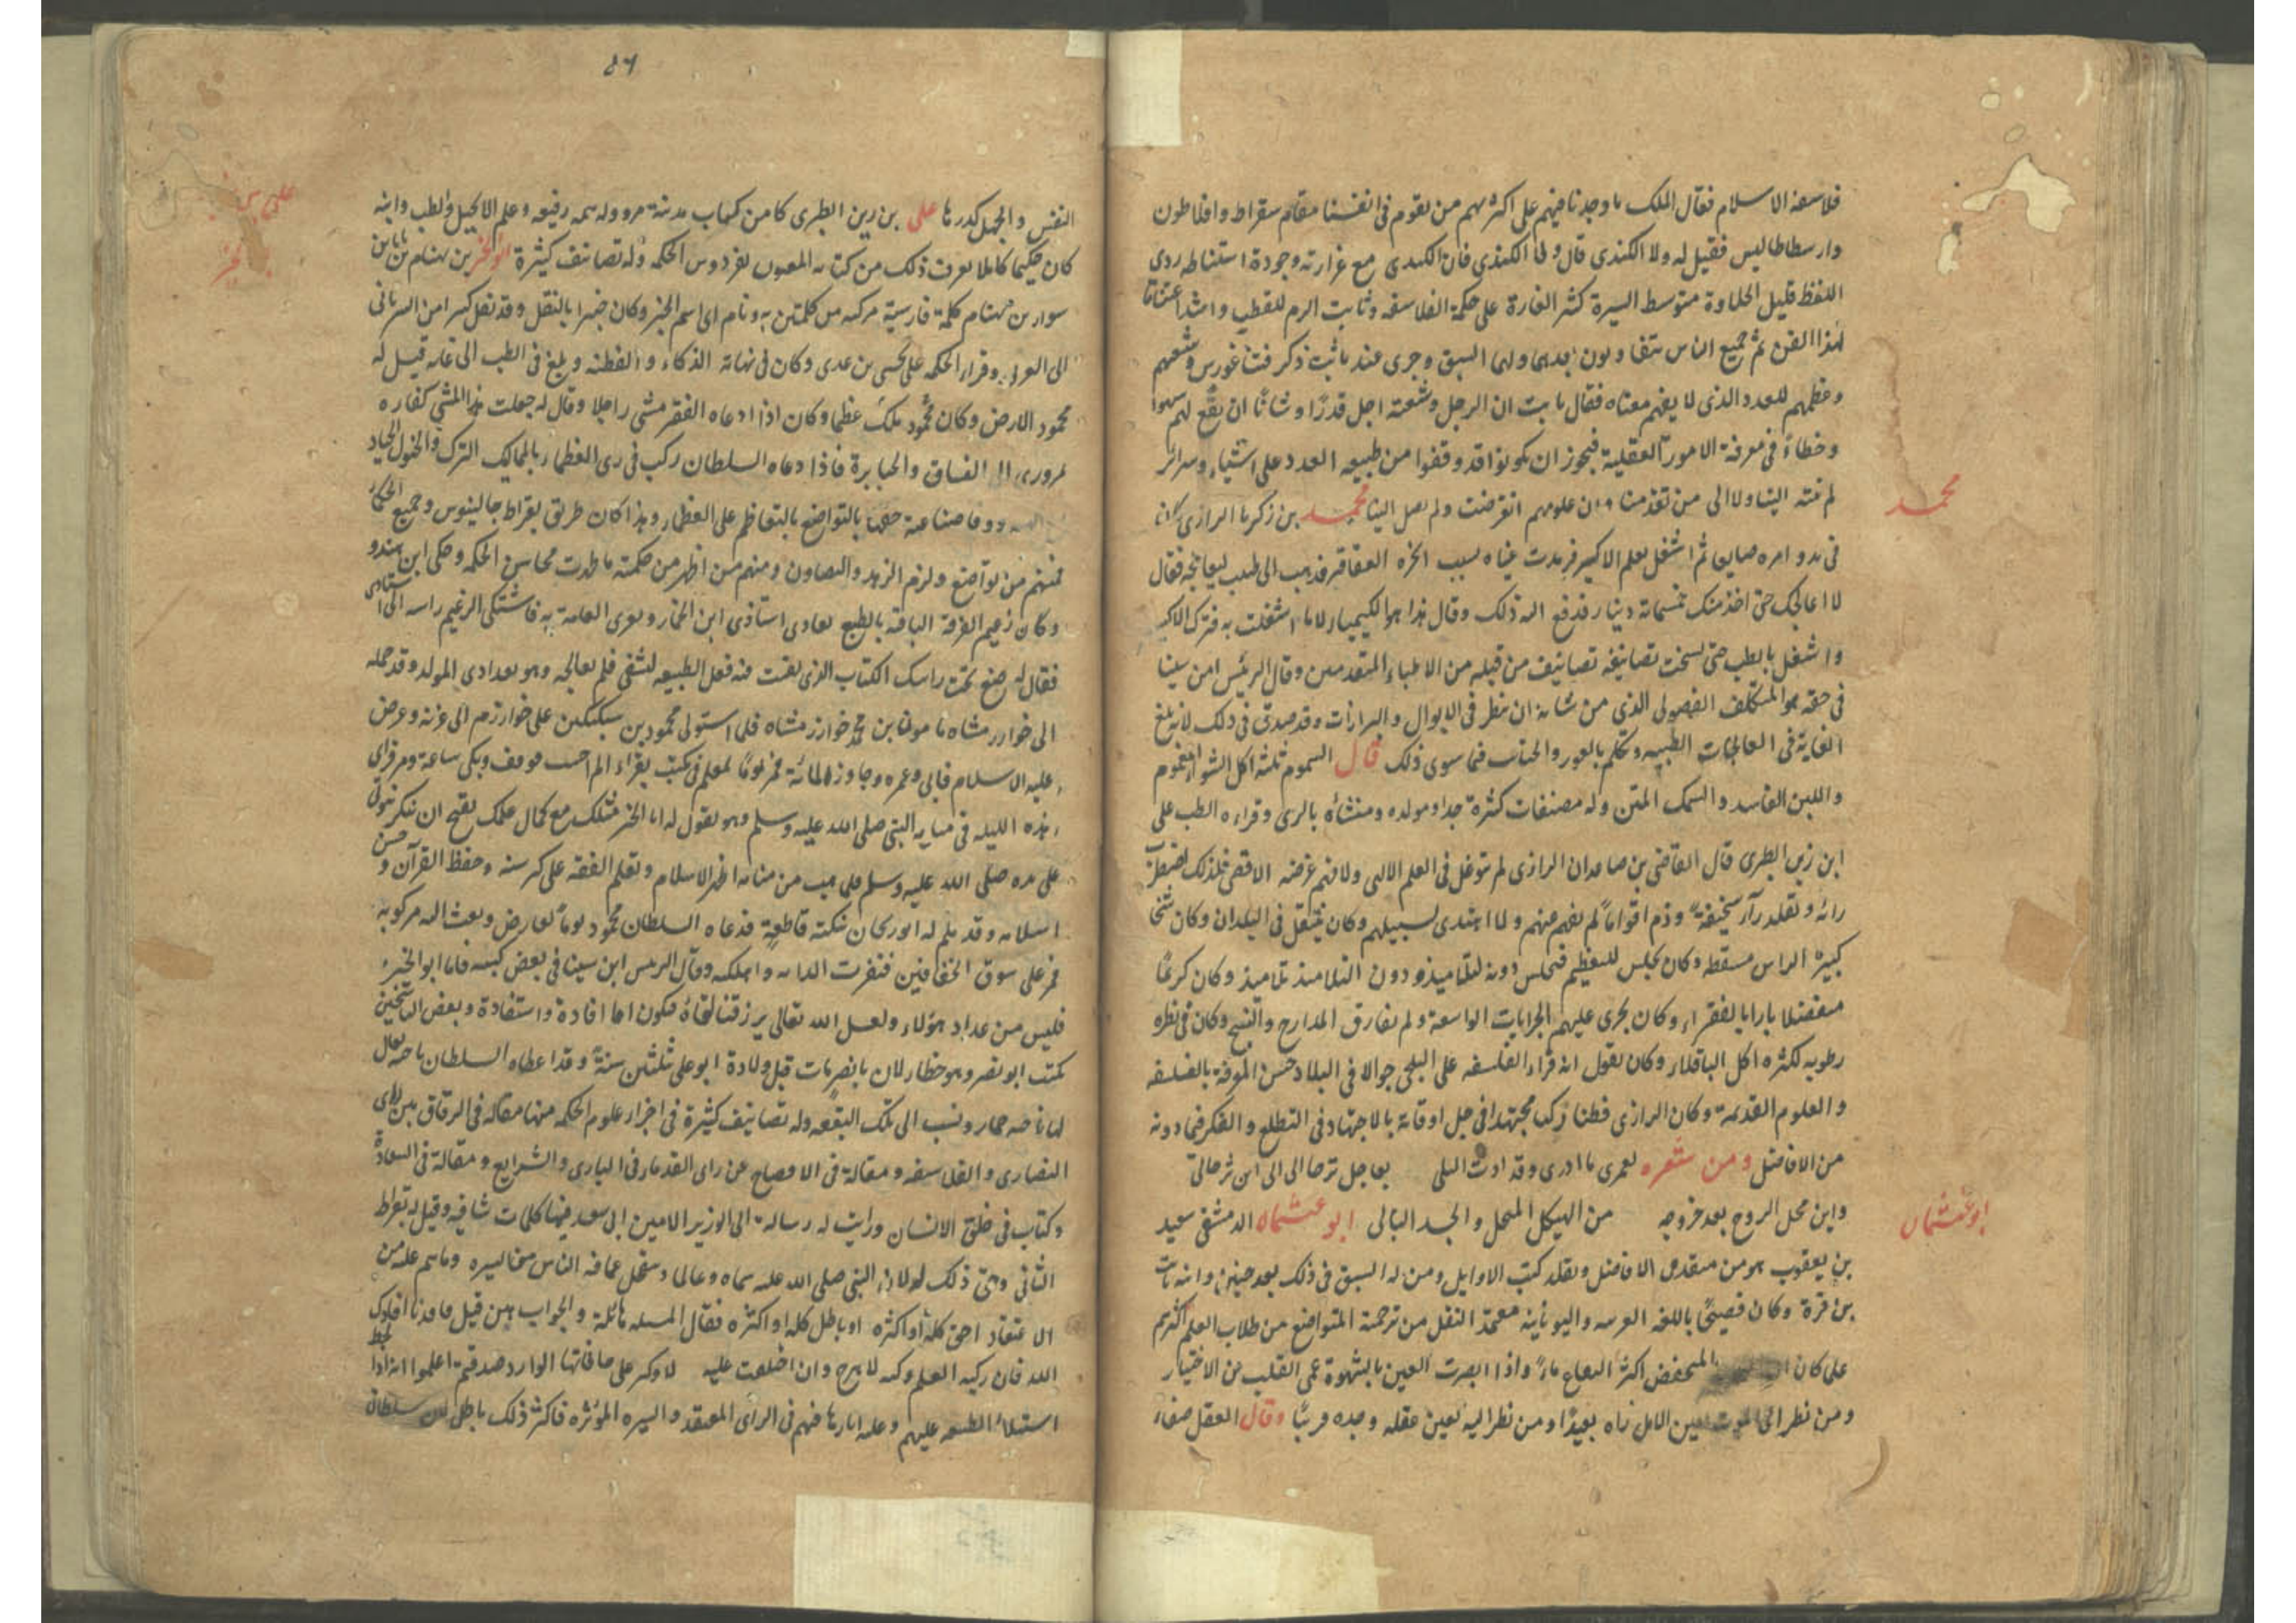 فلاسفة الاسلام فقال الملك ما وجدنا فيهم على اكثرهم من يقوم فى انفسنا مقام سقراط وافلاطون
وارسطاطاليس فقيل له ولا الكندى قال ولا الكندى فان الكندى مع غزارته وجودة استنباطه ردى
اللفظ قليل الحلاوة متوسط السيرة كثير الغارة على حكمة الفلاسفه وثابت الزم للقطب واشد اعتناقا
لهذا الفن ثم جميع الناس يتفاوتون بعدهما ولهما السبق وجرى عند ثابت ذكر فيثاغورس وشيعتهم
وتعظيمهم للعدد الذى لا يفهم معناه فقال ثابت ان الرجل وشيعته اجل قدرًا وشانًا ان يقع لهم سهوا
وخطاء فى معرفة الامور العقلية فيجوز ان يكونوا قد وقفوا من طبيعه العدد على اشياء وسرائر
محمد
لم تنته الينا ولا الى من تقدمنا وان علومهم انقرضت ولم يصل الينا محمد بن زكريا الرازى كان
فى بدو امره صايغا ثم اشتغل بعلم الاكسير فرمدت عيناه بسبب ابخرة العقاقير فذهب الى طبيب ليعالجه فقال
لا اعالجك حتى اخذ منك خمسمائة دينار فدفع اليه ذلك وقال هذا هو الكيمياء لا ما اشتغلت به فترك الاكسير
واشتغل بالطب حتى نسخت تصانيفه تصانيف من قبله من الاطباء المتقدمين وقال الرئيس ابن سينا
فى حقه هو المتكلف الفضولى الذى من شانه ان ينظر فى الابوال والبرازات وقد صدق فى ذلك لانه بلغ
الغاية فى المعالجات الطبيه وتكلم فما سوى ذلك قال السموم ثلثة اكل الشواء المغموم
واللبن الفاسد والسمك المنتن وله مصنفات كثيرة جدا ومولده ومنشأه بالرى وقراءه الطب على
ابن زين الطبرى قال القاضى بن صاعدان الرازى لم توغل فى العلم الالهى ولا فهم غرضه الاقصى فلذلك اضطرب
رائه وتقلد رآراء سخيفة وذم اقوامًا لم يفهم عنهم ولا اهتدى لسبيلهم وكان يتنقل فى البلدان وكان شيخا
كبيرة الراس مسفطه وكان يجلس للتعظيم فيجلس دونه التلاميذ ودون التلاميذ تلاميذ وكان كريمًا
متفضلا بارا بالفقراء وكان يجرى عليهم الجرايات الواسعة ولم يفارق المدارج والنسخ وكان فى نظره
رطوبه لكثرة اكل الباقلاء وكان يقول انه قراء الفلسفه على البلخى جوالا فى البلاد حسن المعرفة بالفلسفه
والعلوم القديمة وكان الرازى فطنا ذكيا مجتهدا فى جل اوقاته بالاجتهاد فى التطلع والفكر فيما دونه
من الافاضل ومن شعره لعمرى ما ادرى وقد اذن البلى بعاجل ترحالى الى اين ترحالى
ابو عثمان
واين محل الروح بعد خروجه من الهيكل المنحل والجسد البالى ابو عثمان الدمشقى سعيد
بن يعقوب هو من متقدمى الافاضل ونقله كتب الاوايل ومن له السبق فى ذلك بعد حنين وابنه ثابت
بن قرة وكان فصيحًا باللغه العربيه واليونانيه معتمد النقل من ترجمة المتواضع من طلاب العلم اكثرهم
على كان المنخفض اكثر البقاع ماءً واذا ابصرت العين بالشهوة عمى القلب عن الاختيار
ومن نظر الى الموت بعين الامل راه بعيدًا ومن نظر اليه بعين عقله وجده قريبًا وقال العقل صفاء
٤٦
النفس والجهل كدرها على بن رين الطبرى كان من كتاب مدينة مرو وله همه رفيعه وعلم الانجيل والطب وابنه
على بن
كان حكيما كاملا يعرف ذلك من كتابه المعنون بفردوس الحكمه وله تصانيف كثيرة ابو الخير بن بهنام بن بابا بن
سوار بن بهنام كلمة فارسية مركبه من كلمتين به ونام اى اسم الخير وكان خبيرا بالنقل وقد نقل كثيرا من السريانى
الى العربى وقراء الحكمه على يحيى بن عدى وكان فى نهاية الذكاء والفطنه وبلغ فى الطب الى غايه قيل له
محمود الارض وكان محمود ملك عظيما وكان اذا دعاه الفقير مشى راجلا وقال له جعلت هذا المشى كفاره
لمرورى الى الفساق والجبابرة فاذا دعاه السلطان ركب فى زى العظماء بالمماليك الترك والخيول الجياد
ووفا صناعة حقها بالتواضع بالتعاظم على العظماء وهذا كان طريق بقراط جالينوس وجميع الحكماء
فمنهم من تواضع ولزم الزهد والتصاون ومنهم من اظهر من حكمته ما ظهرت محاسن الحكمه وحكى ابن هندو
وكان زعيم الفرقة يعادى استاذى ابن الخمار ويغرى العامة به فاشتكى الزعيم راسه الى استاذى
فقال له ضع تحت راسك الكتاب الذى نفيت فيه فعل الطبيعه لتشفى فلم يعالجه وهو بغدادى المولد وقد حمله
الى خوارزمشاه مامون بن محمد خوارزمشاه فلما استولى محمود بن سبكتكين على خوارزم الى غزنه وعرض
عليه الاسلام فابى وعمره وجاوز المائة فمر يومًا لمعلم فى مكتب يقراء الم احسب فوقف وبكى ساعة ومر فراى
هذه الليله فى منامه النبى صلى الله عليه وسلم وهو يقول له ابا الخير مثلك مع كمال علمك يقبح ان ينكر نبوتى
على يده صلى الله عليه وسلم فلما هب من منامه اظهر الاسلام وتعلم الفقه على كبر سنه وحفظ القرآن وحسن
اسلامه وقد علم له ابو ريحان نكتة قاطعة فدعاه السلطان محمود يوما لعارض وبعث اليه مركوبه
فمر على سوق الخفافين فنفرت الدابه واهلكه وقال الرئيس ابن سينا فى بعض كتبه فاما ابو الخير
فليس من عداد هؤلاء ولعل الله تعالى يرزقنا لقاءه فيكون اما افادة واستفادة وبعض الناسخين
يكتب ابو نصر وهو خطاء لان بانصر مات قبل ولادة ابو على ثلثين سنة وقد اعطاه السلطان ناحيه يقال
لها ناحيه خمار ونسب الى تلك البقعه وله تصانيف كثيرة فى اجزاء علوم الحكمه منها مقاله فى الوفاق بين راى
النصارى والفلاسفه ومقالة فى الافصاح عن راى القدماء فى البارى والشرايع ومقالة فى السعادة
وكتاب فى خلق الانسان ورايت له رسالة الى الوزير الامين ابى سعد فيها كلمات شافيه وقيل له بقراط
الثانى وحق ذلك له لان النبى صلى الله عليه سماه وعالما وسئل عما فيه الناس من السيره وما هم عليه من
الاعتقاد احق كله او اكثره او باطل كله او اكثره فقال المسئله هائلة والجواب هين
الله فان ركبه العلم اعلموا انه اذا
استيلاء الطبيعه عليهم وغلبه اثارها فيهم فى الراى المعتقد والسيره المؤثره فاكثر ذلك باطل لان سلطان